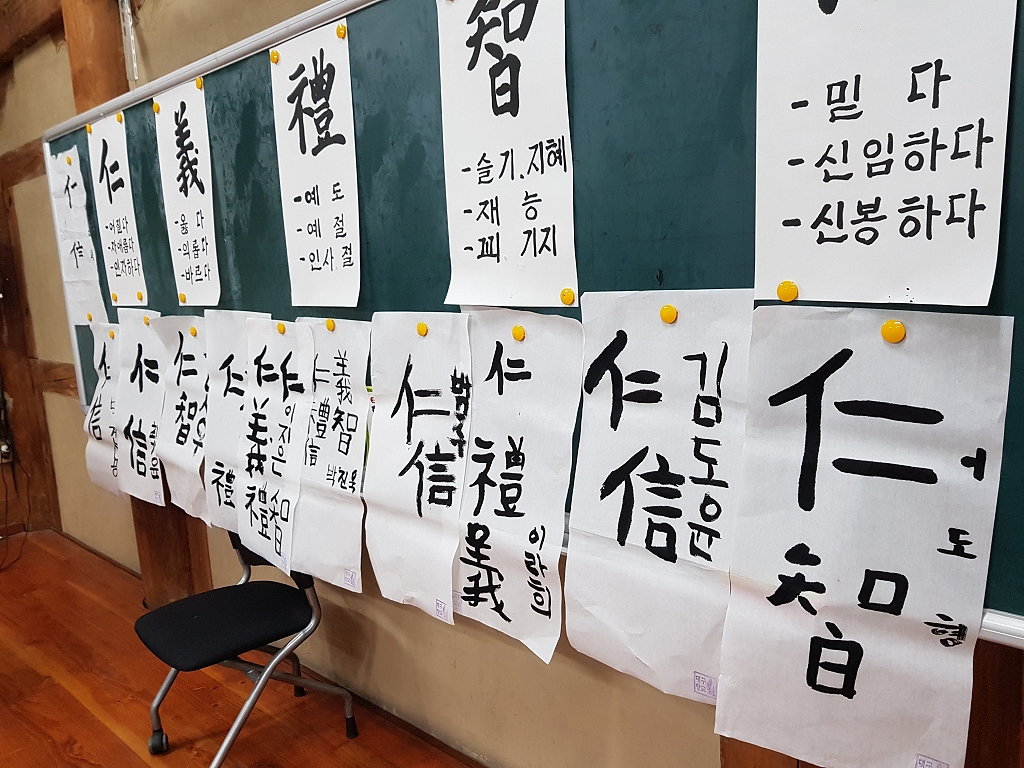 仁
-어질다
-자애롭다
-인자하다
義
-옳 다
-의롭다
-바르다
禮
-예 도
-예 절
-인사.절
智
-슬기.지혜
-재 능
-꾀 기지
-믿 다
-신임하다
-신봉하다
仁
信
仁
信
仁
智
仁
禮
仁
義
禮
仁
智
이지은
仁
禮
信
義
智
박진욱
仁
信
仁
禮
義
仁
信
김도윤
仁
智
이도형